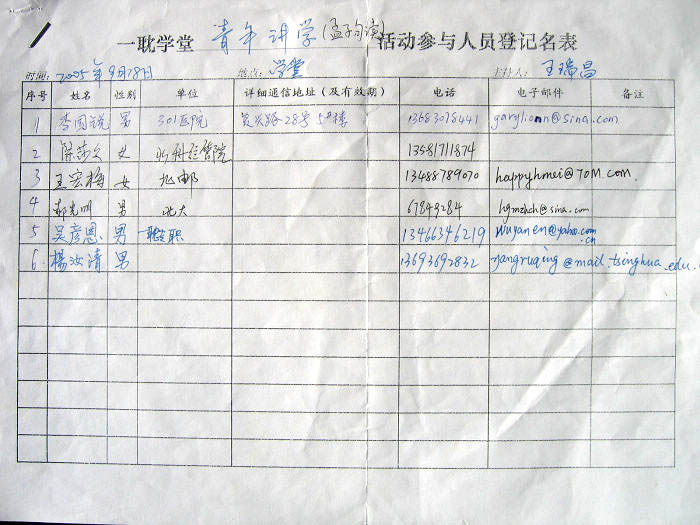 一耽学堂 青年讲学(孟子句读) 活动参与人员登记名表
时间: 2005年9月18日 地点: 学堂 主持人: 王瑞昌
序号 姓名 性别 单位 详细通信地址(及有效期) 电话 电子邮件 备注
1 李国锐 男 301医院 28号5#楼 13683078441 garylionn@sina.com
2 女 13581711874
3 王宏梅 女 北邮 13488789070 happyhmei@TOM.COM.
4 郝光明 男 北大 67849284 hgmzhch@sina.com
5 吴彦恩 男 一耽专职 13466346219 wuyanen@yahoo.com
.cn
6 楊汝清 男 13693692832 yangruqing@mail.tsinghua.edu.